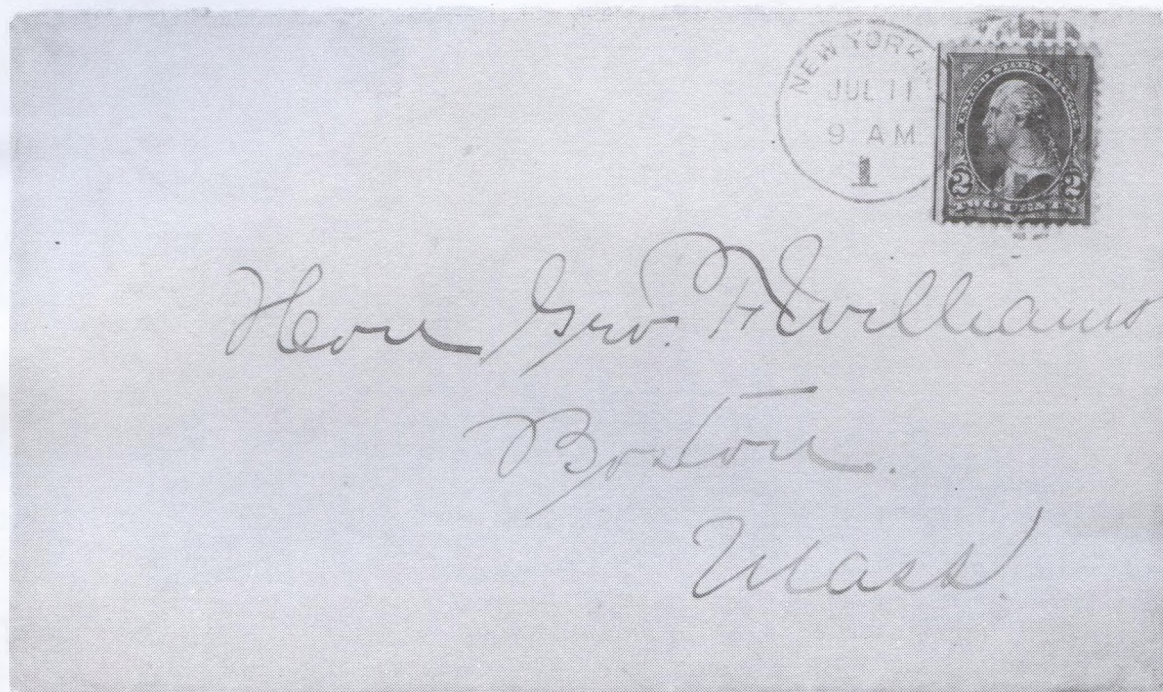 NEW YORK, N.
JUL 11
9 AM
1
UNITED STATES POSTAGE
2 2
TWO CENTS
Hon Geo. F. Williams
Boston.
Mass.